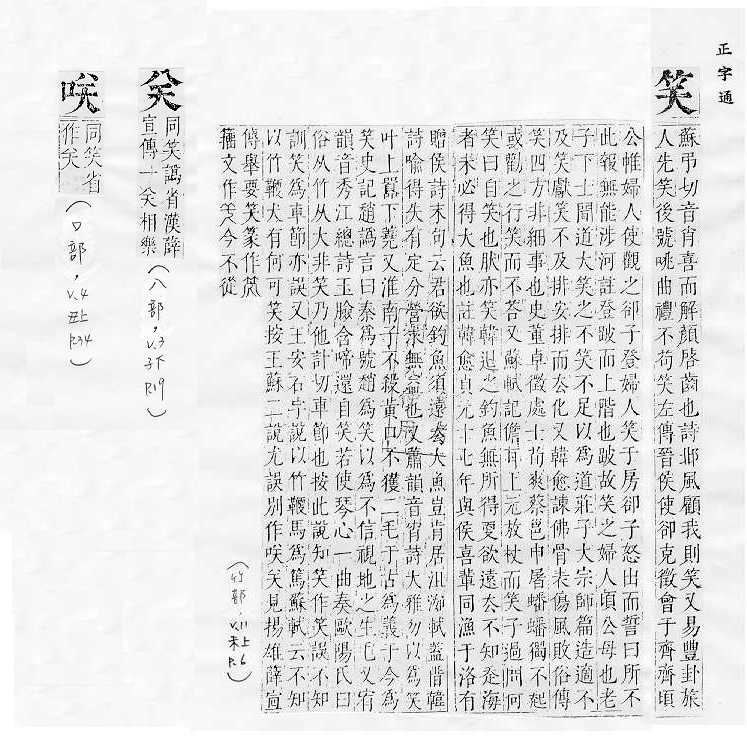 正字通
笑
蘇弔切音肖喜而解顏啓齒也詩邶風顧我則笑又易豐卦旅
人先笑後號咷曲禮不苟笑左傳晉侯使郤克徵會于齊齊頃
公帷婦人使觀之郤子登婦人笑于房郤子怒出而誓曰所不
此報無能涉河註登跛而上階也跛故笑之婦人頃公母也老
子下士聞道大笑之不笑不足以爲道莊子大宗師篇造適不
及笑獻笑不及排安排而去化又韓愈諫佛骨表傷風敗俗傳
笑四方非細事也史董卓徵處士荀爽蔡邕申屠蟠蟠獨不起
或勸之行笑而不答又蘇軾記儋耳上元放杖而笑子過問何
笑曰自笑也肰亦笑韓退之釣魚無所得更欲遠去不知走海
者未必得大魚也註韓愈貞元十七年與侯喜輩同漁于洛有
贈侯詩末句云君欲釣魚須遠去大魚豈肯居沮洳軾蓋借韓
詩喻得失有定分營求無益也又蕭韻音宵詩大雅勿以爲笑
叶上囂下蕘又淮南子不殺黃口不獲二毛于古爲義于今爲
笑史記趙譌言曰秦爲號趙爲笑以爲不信視地之生毛又宥
韻音秀江總詩玉臉含啼還自笑若使琴心一曲奏歐陽氏曰
俗从竹从大非笑乃他計切車節也按此說知笑作笑誤不知
訓笑爲車節亦誤又王安石字說以竹鞭馬爲篤蘇軾云不知
以竹鞭犬有何可笑按王蘇二說尤誤別作咲关見揚雄薛宣
傳舉要笑篆作
籀文作 今不從
(竹部,V.11
未上
P.6)
关
同笑譌省漢薛
宣傳一关相樂
(八部,V.3
子下
P.19)
咲
同笑省
作关
(口部,V.4
丑上
P.34)